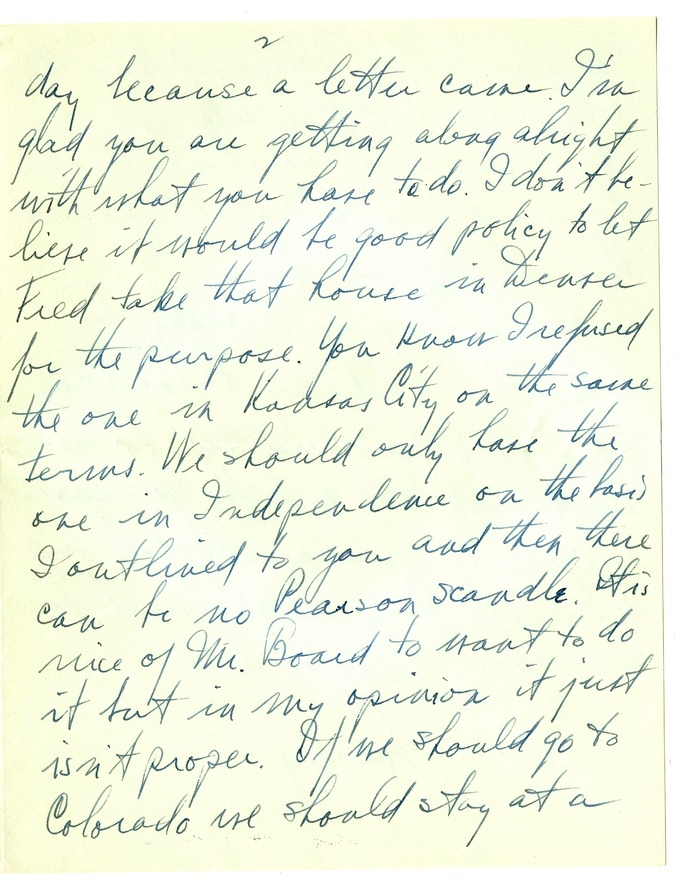 2
day because a letter came. I'm
glad you are getting along alright
with what you have to do. I don't be-
lieve it would be good policy to let
Fred take that house in Denver
for the purpose. You know I refused
the one in Kansas City on the same
terms. We should only have the
one in Independence on the basis
I outlined to you and then there
can be no Pearson scandle. It is
nice of Mr. Board to want to do
it but in my opinion it just
isn't proper. If we should go to
Colorado we should stay at a